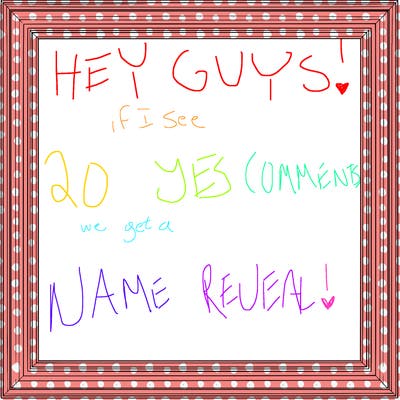 HEY GUYS!
if I see
20 YES COMMENTS
we get a
NAME REVEAL!